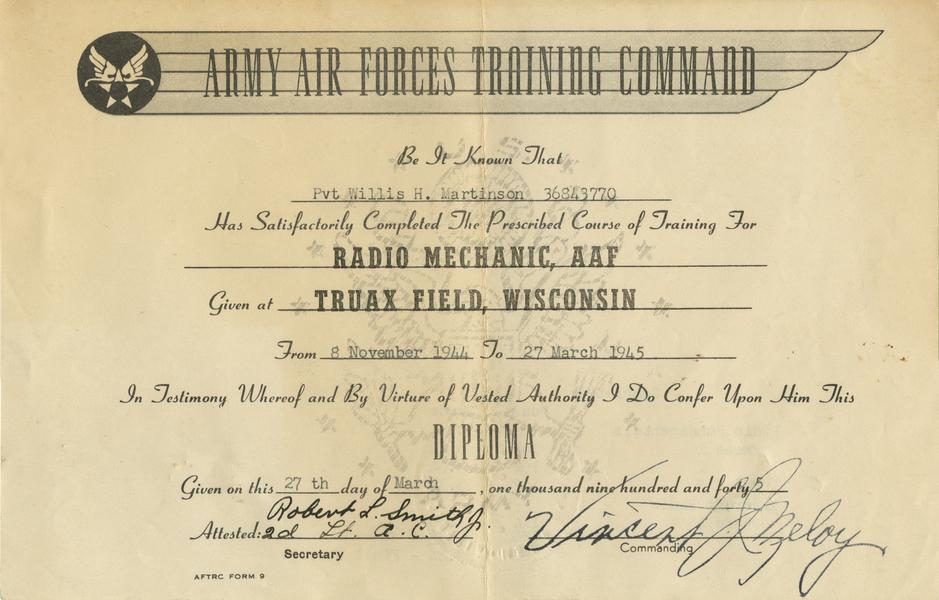 ARMY AIR FORCES TRAINING COMMAND
Be It Known That
Pvt Willis H. Martinson 36843770
Has Satisfactorily Completed The Prescribed Course of Training For
RADIO MECHANIC, AAF
Given at TRUAX FIELD, WISCONSIN
From 8 November 1944 To 27 March 1945
In Testimony Whereof and By Virtue of Vested Authority I Do Confer Upon Him This
DIPLOMA
Given on this 27 th day of March, one thousand nine hundred and forty 5
Robert L. Smith Jr.
Attested: 2d Lt. A.C.
Vincent J. Meloy
Secretary
Commanding
AFTRC FORM 9